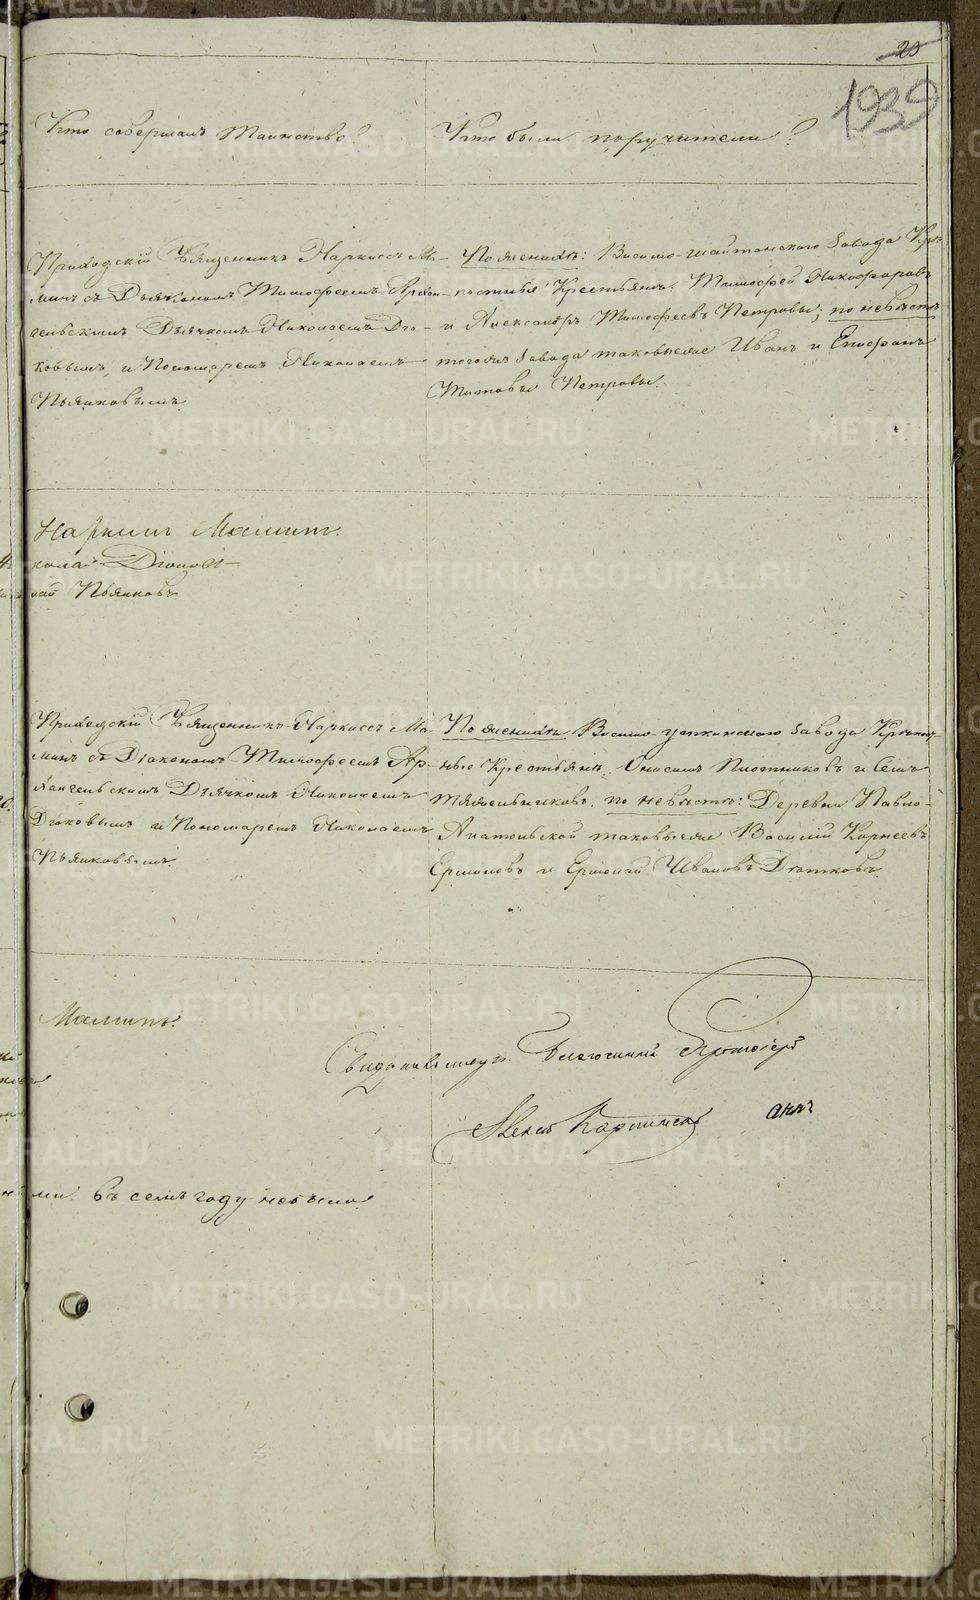 20
1939
Кто совершалъ таинство?
Кто были поручители?
Приходскій Священникъ Наркиссъ Ма-
минъ съ Дьякономъ Тимофеемъ Архан-
гельскимъ Дьячкомъ Николаемъ Дю-
ковымъ, и Пономаремъ Николаемъ
Пьянковымъ
По женихѣ: Висимо-шайтанскаго Завода Крѣ-
постные Крестьяне: Тимофей Никифоровъ
и Александръ Тимофеевъ Петровы; по невѣстѣ
тогожъ Завода таковыеже Иванъ и Епифанъ
Титовы Петровы.
Наркисъ Маминъ.
колай Дюковъ
лай Пьянковъ
Приходскій Священникъ Наркиссъ Ма-
минъ съ Діакономъ Тимофеемъ Ар-
хангельскимъ Дьячкомъ Николаемъ
Дюковымъ и Пономаремъ Николаемъ
Пьянковымъ
По женихѣ Висимо-уткинскаго Завода Крѣпост-
ные Крестьяне, Онисимъ Плотниковъ и
Тяжельниковъ, по невѣстѣ: Деревни Павло-
Анатольской таковыеже Василій Корнеевъ
Ермаковъ и Ермолай Ивановъ
Маминъ.
Свидѣтельствуетъ Благочинный Протоіерей
Карпинскій
ми въ семъ году небыло
METRIKI.GASO-URAL.RU